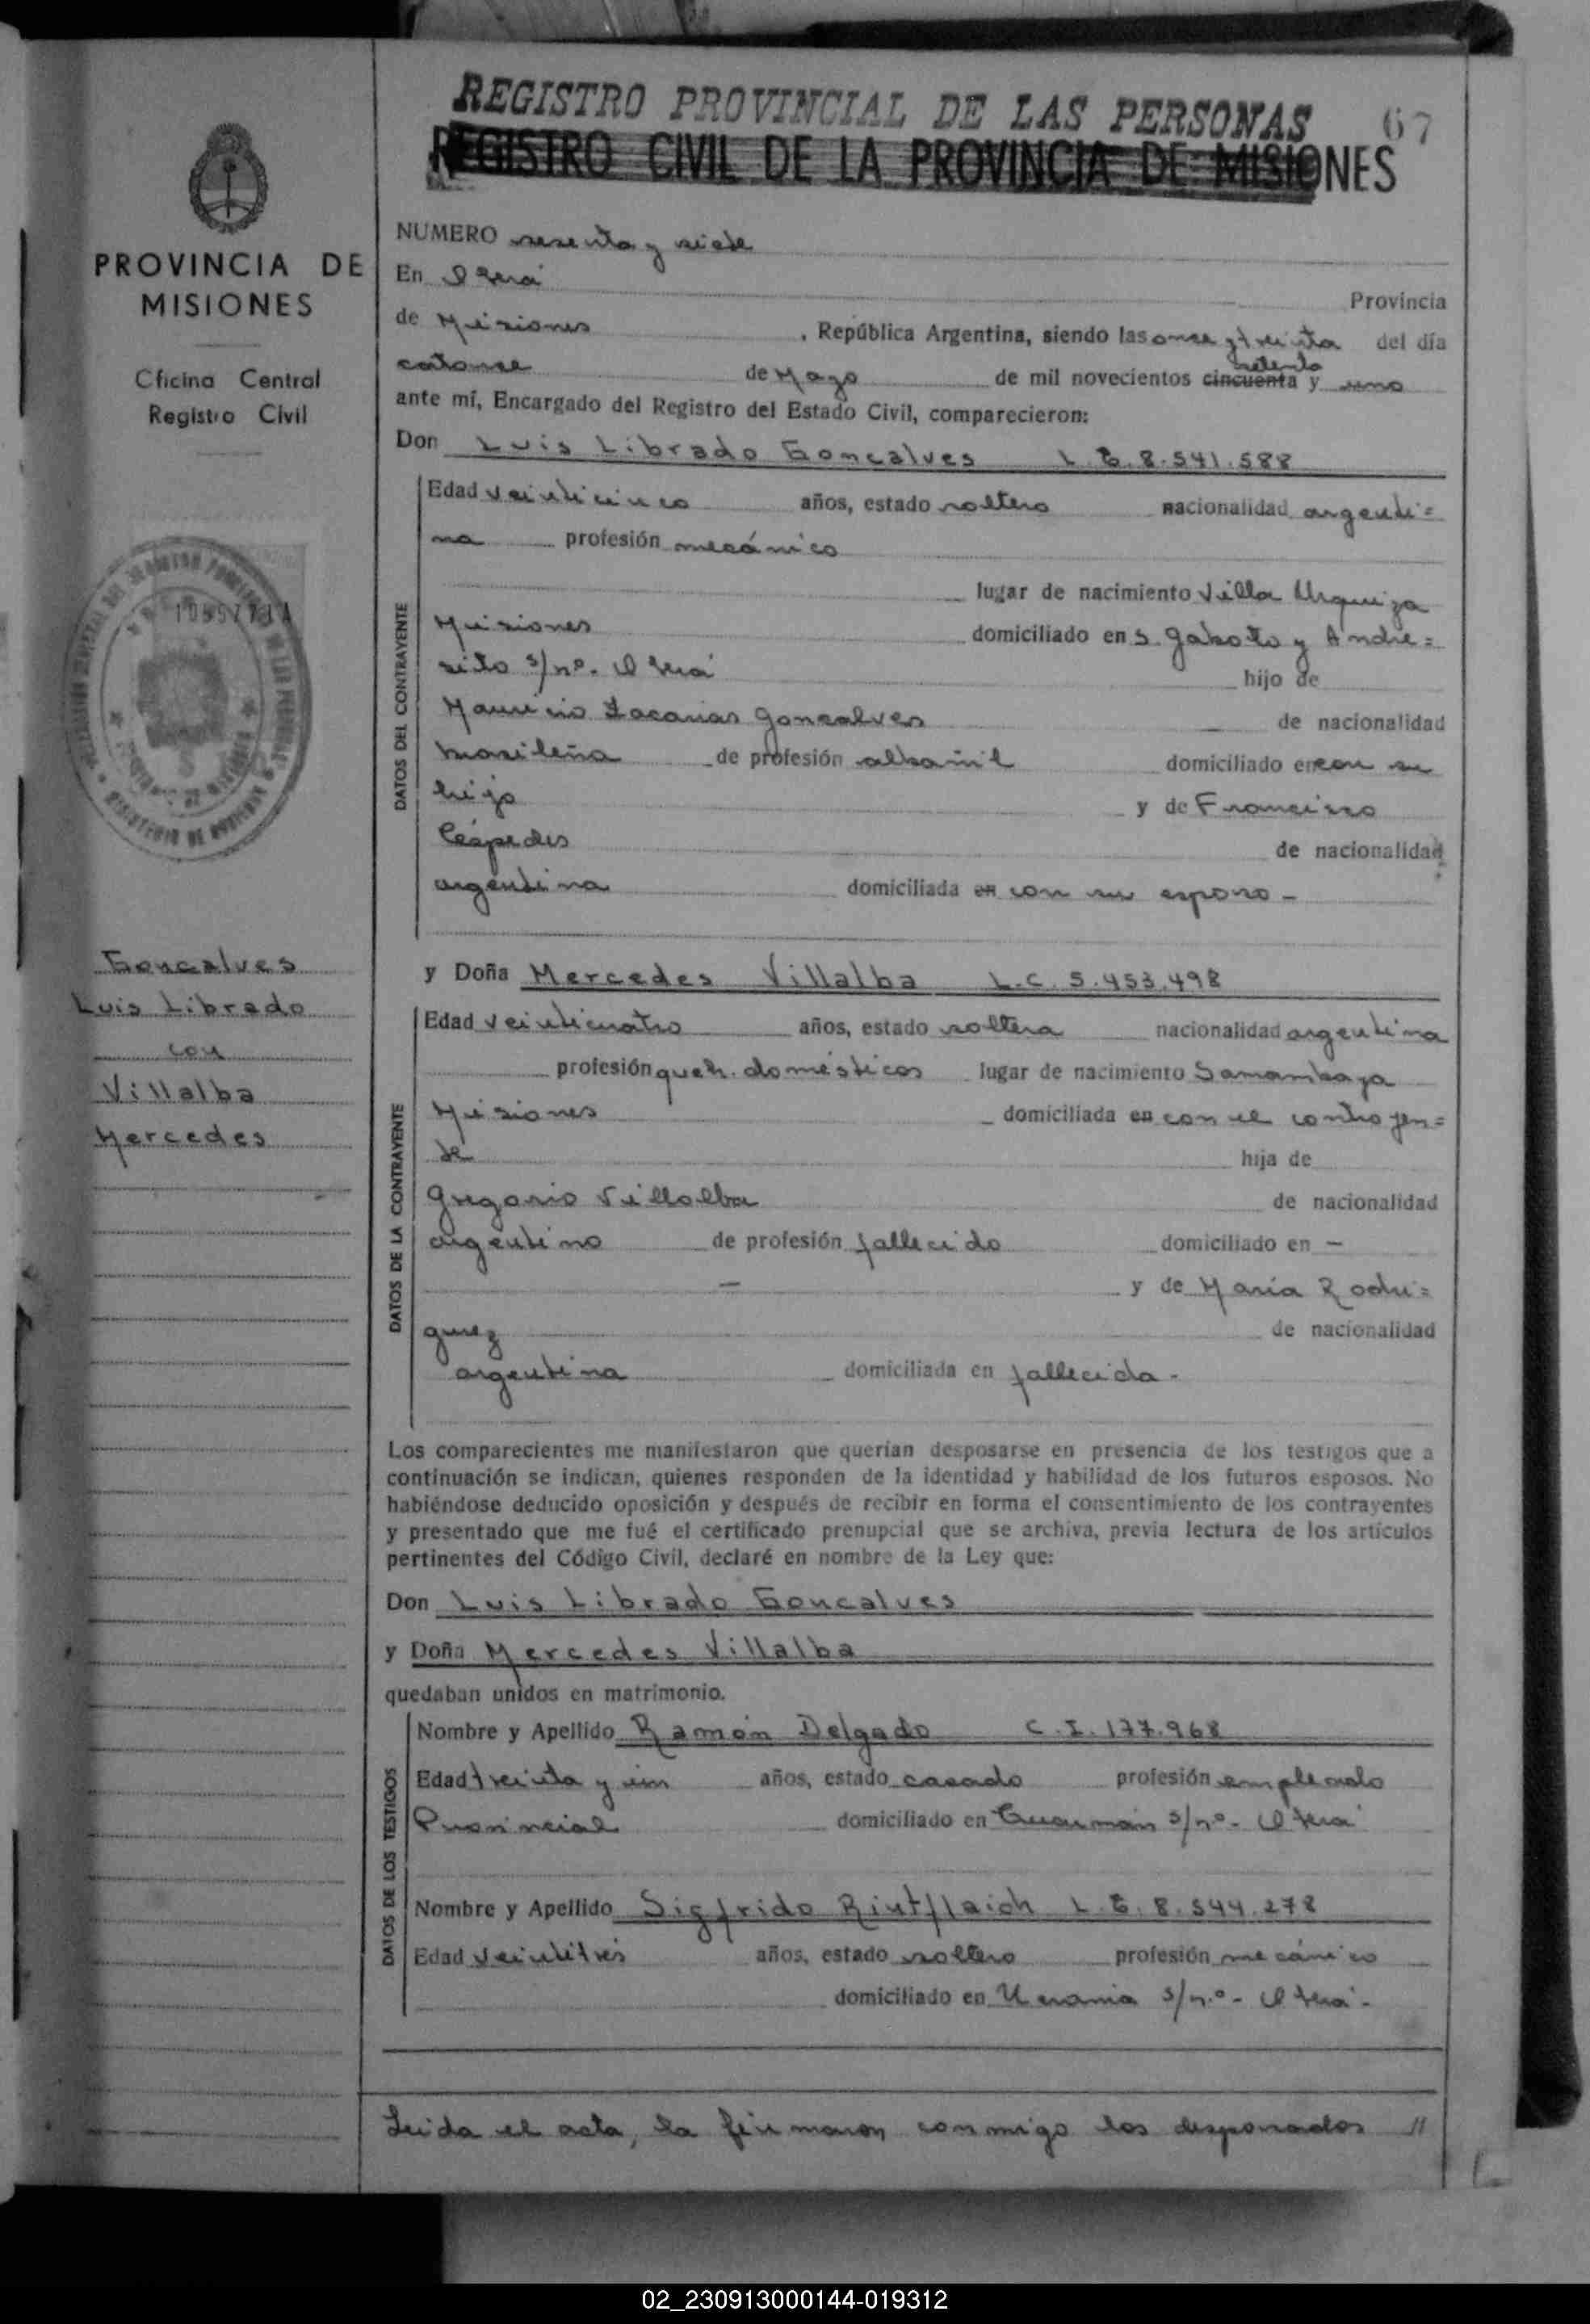 REGISTRO PROVINCIAL DE LAS PERSONAS 67
REGISTRO CIVIL DE LA PROVINCIA DE MISIONES
PROVINCIA DE
MISIONES
Oficina Central
Registro Civil
NUMERO sesenta y siete
En Oberá Provincia
de Misiones, República Argentina, siendo las once y treinta del día
catorce de Mayo de mil novecientos cincuenta setenta y uno
ante mí, Encargado del Registro del Estado Civil, comparecieron:
Don Luis Librado Goncalves L.E. 8.541.588
DATOS DEL CONTRAYENTE
Edad veinticinco años, estado soltero nacionalidad argenti=
na profesión mecánico
lugar de nacimiento Villa Urquiza
Misiones domiciliado en S. Gaboto y Andre=
sito s/nº. Oberá hijo de
Mauricio Zacarias Goncalves de nacionalidad
brasileña de profesión albañil domiciliado en con su
hijo y de Francisca
Céspedes de nacionalidad
argentina domiciliada en con su esposo -
Goncalves
Luis Librado
con
Villalba
Mercedes
y Doña Mercedes Villalba L.C. 5.453.498
DATOS DE LA CONTRAYENTE
Edad veinticuatro años, estado soltera nacionalidad argentina
profesión queh. domésticos lugar de nacimiento Samambaya
Misiones domiciliada en con el contrayen=
te hija de
Gregorio Villalba de nacionalidad
argentino de profesión fallecido domiciliado en -
- y de María Rodri=
guez de nacionalidad
argentina domiciliada en fallecida -
Los comparecientes me manifestaron que querían desposarse en presencia de los testigos que a
continuación se indican, quienes responden de la identidad y habilidad de los futuros esposos. No
habiéndose deducido oposición y después de recibir en forma el consentimiento de los contrayentes
y presentado que me fué el certificado prenupcial que se archiva, previa lectura de los artículos
pertinentes del Código Civil, declaré en nombre de la Ley que:
Don Luis Librado Goncalves
y Doña Mercedes Villalba
quedaban unidos en matrimonio.
DATOS DE LOS TESTIGOS
Nombre y Apellido Ramón Delgado C.I. 177.968
Edad treinta y un años, estado casado profesión empleado
Provincial domiciliado en s/nº- Oberá
Nombre y Apellido Sigfrido Rintflaich L.E. 8.544.278
Edad veintitrés años, estado soltero profesión mecánico
domiciliado en Ucrania s/n.º- Oberá -
Leida el acta, la firmaron conmigo los desposados //
02_230913000144-019312